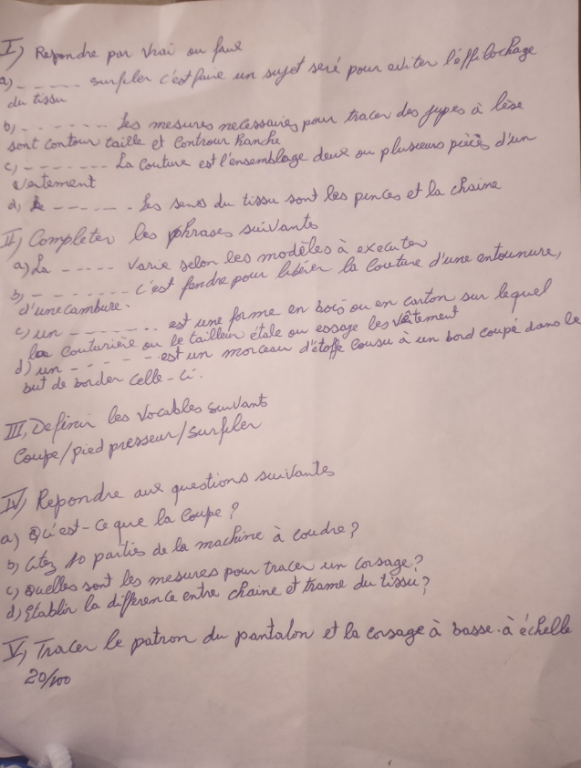 I) Repondre par vrai ou faux
a) ------ surfiler c'est faire un sujet seré pour eviter l'éffilochage
du tissu
b) ------- Les mesures necessaires pour tracer des jupes à lèse
sont contour taille et controur hanche
c) ------- La couture est l'ensemblage deux ou plusieurs pièces d'un
vertement
d) ------- Les sens du tissu sont les pinces et la chaine
II) Completer les phrases suivantes
a) La ----- varie selon les modèles à executer
b) ------- c'est fendre pour libérer la couture d'une entounure,
d'une cambure.
c) un -------- est une forme en bois ou en carton sur lequel
la couturière ou le tailleur étale ou essage les vêtement
d) un ------ est un morceau d'étoffe cousu à un bord coupé dans le
but de border celle-ci.
III, Definir les vocables suivant
Coupe/pied presseur/surfiler
IV, Repondre aux questions suivantes
a) Qu'est-ce que la coupe ?
b) Citez 10 parties de la machine à coudre ?
c) Quelles sont les mesures pour tracer un corsage ?
d) Etablir la difference entre chaine et trame du tissu ?
V, Tracer le patron du pantalon et la corsage à basse à échelle
20/100